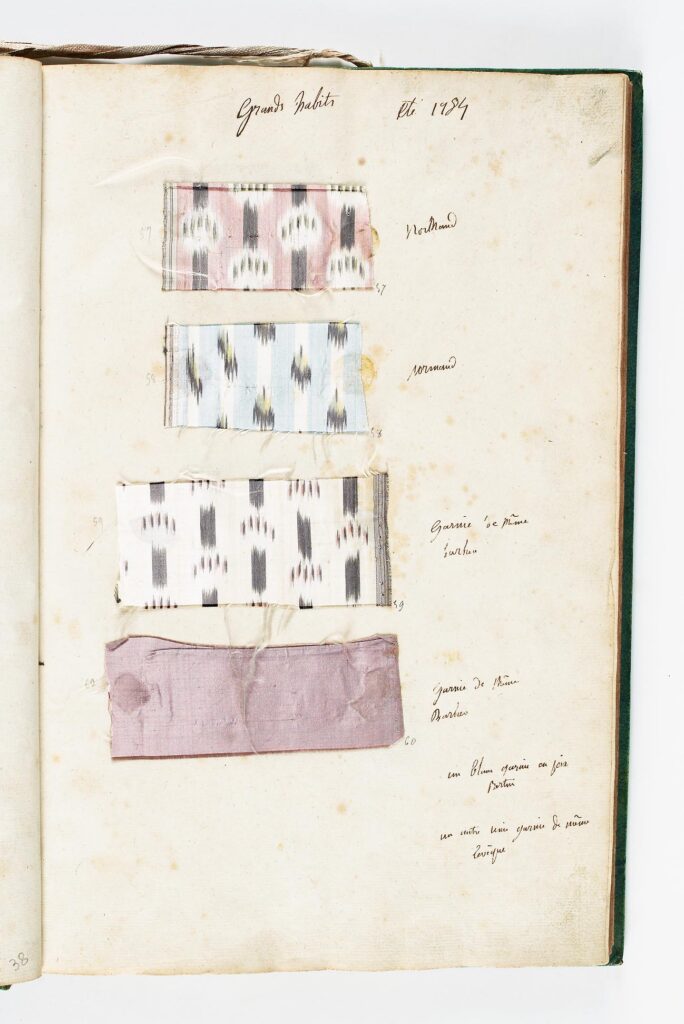 Grands habits Eté 1784
57
Normand
57
58
Normand
58
59
garnie de même
59
60
garnie de même
60
un blanc garnie en
Bertin
un autre unie garnie de même
levêque
38